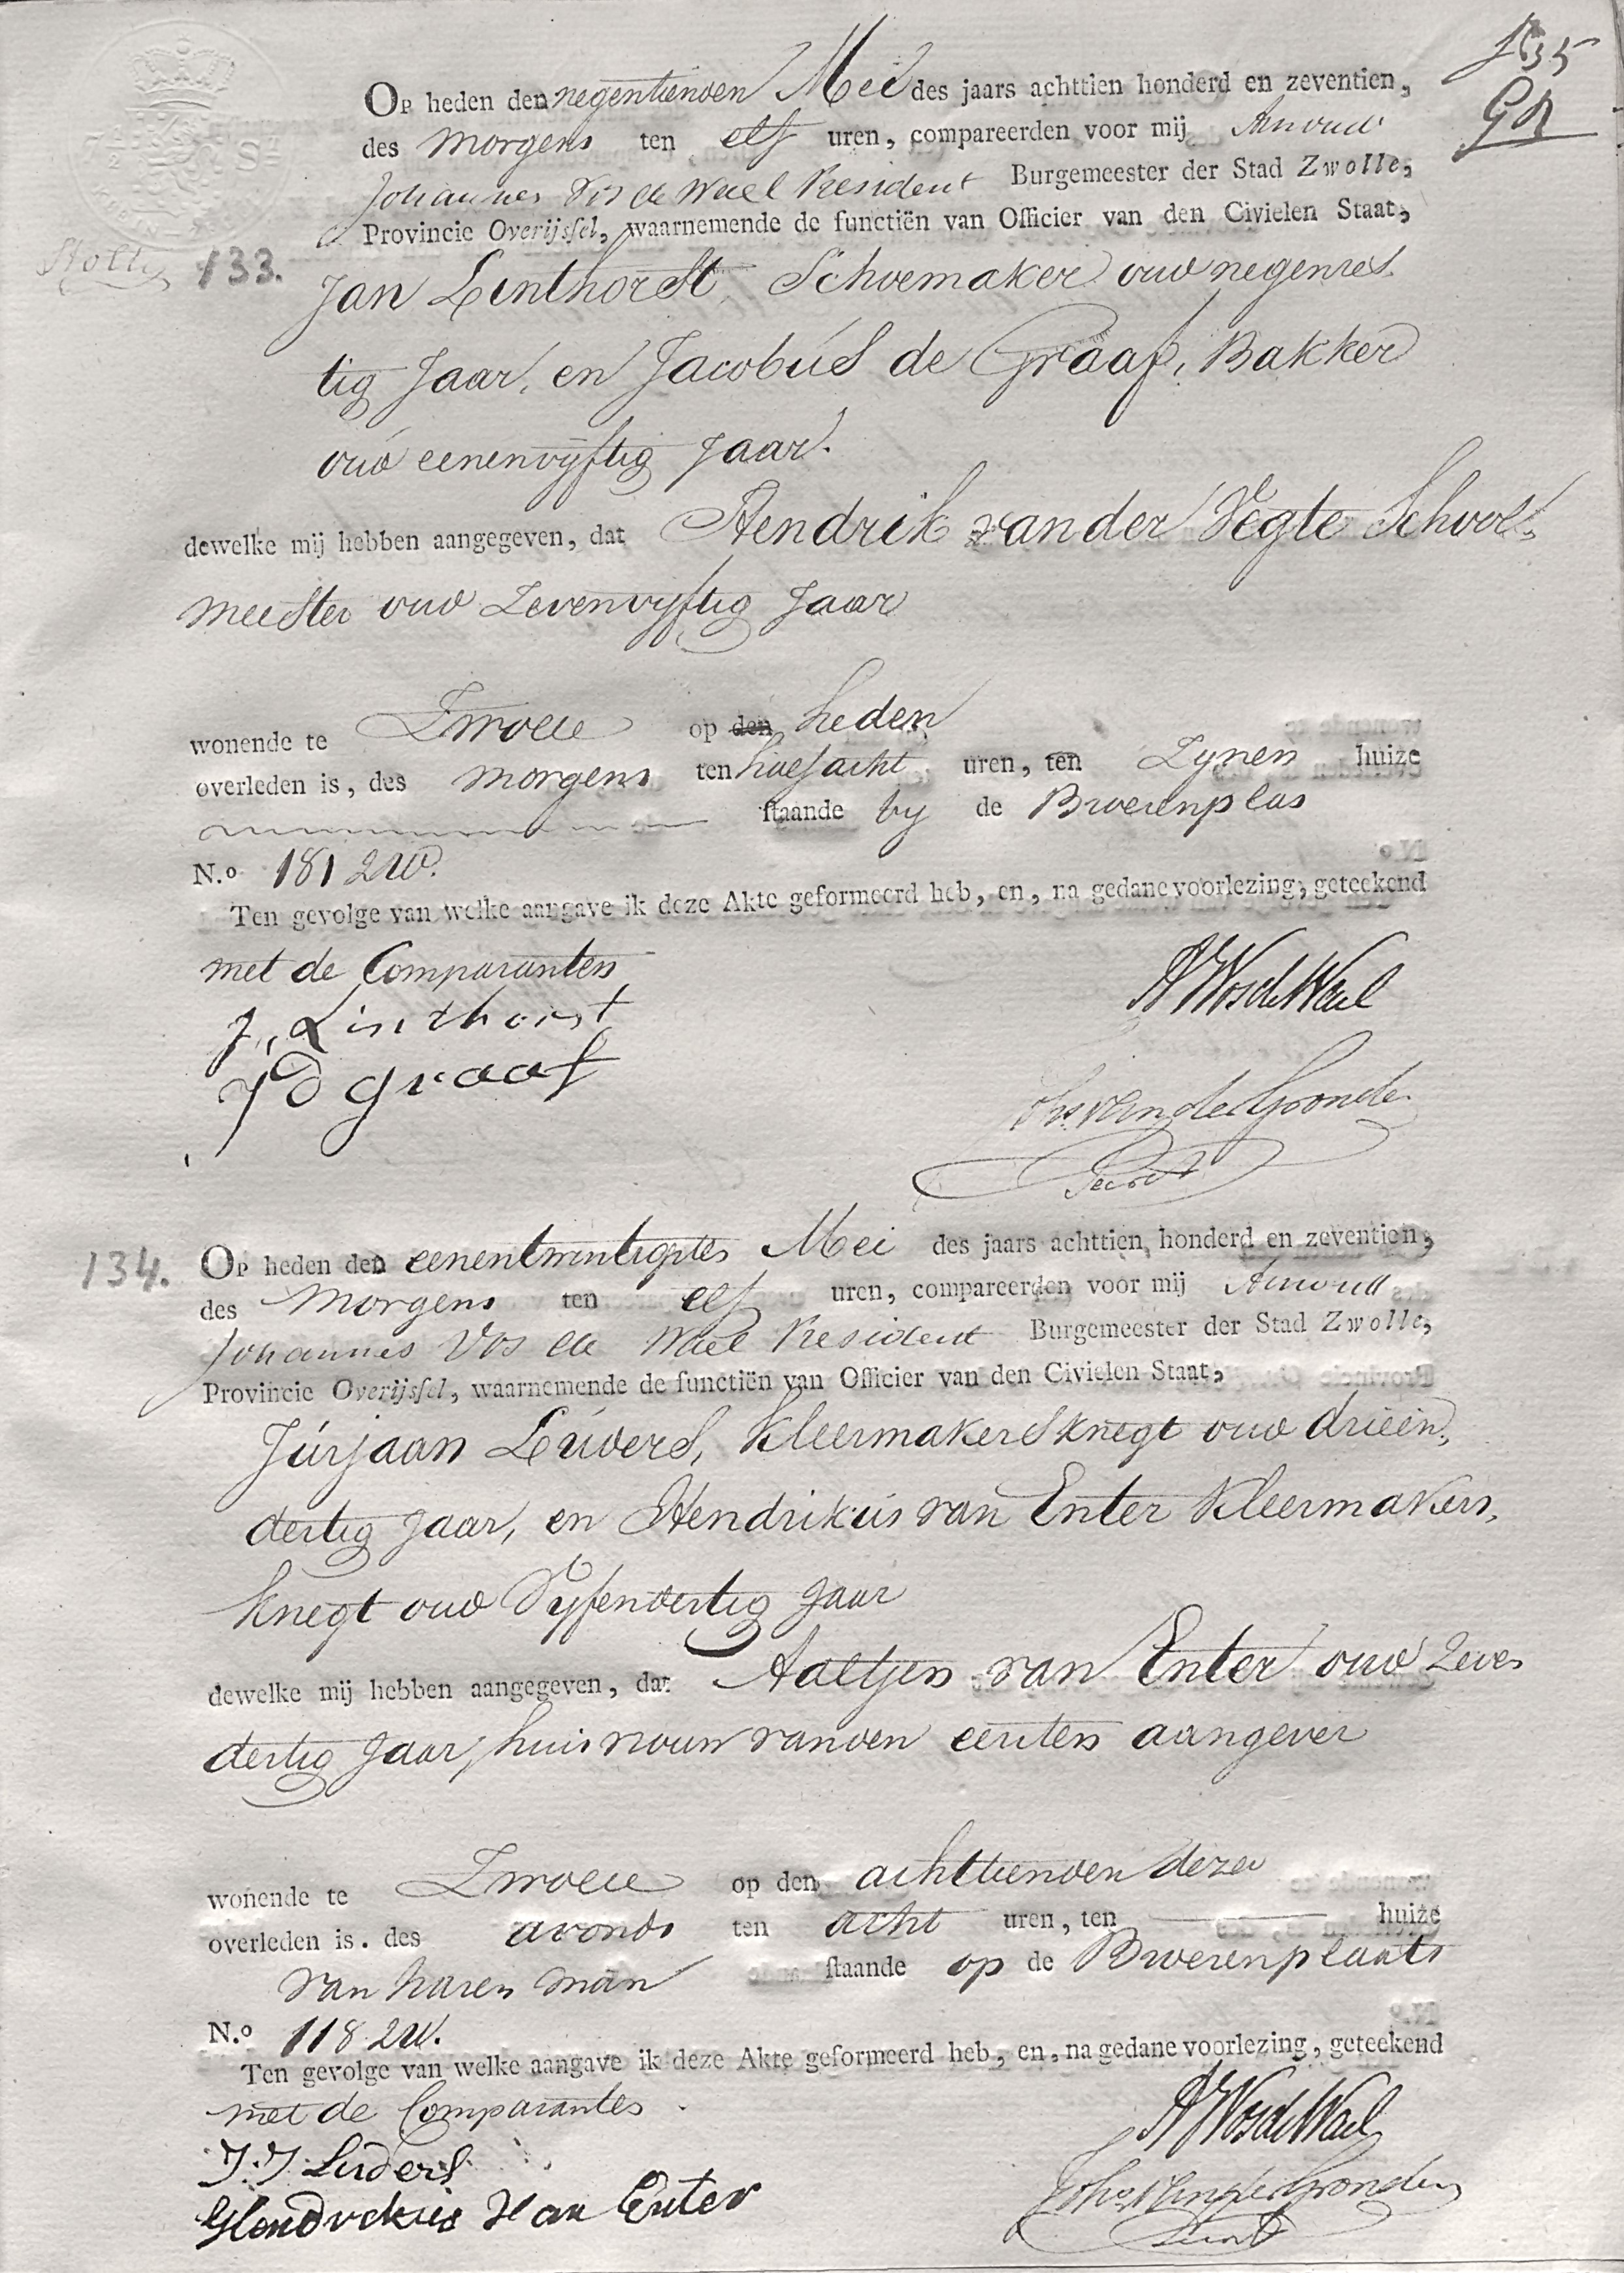 Op heden den negentienden Mei des jaars achttien honderd en zeventien,
des morgens ten elf uren, compareerden voor mij Arnoud
Johannes Vos de Wael President Burgemeester der Stad Zwolle,
Provincie Overijssel, waarnemende de functiën van Officier van den Civielen Staat,
133.
Jan Linthorst, Schoemaker oud negenves
tig Jaar, en Jacobus de Graaf, Bakker
oud eenenvijftig Jaar.
dewelke mij hebben aangegeven, dat Hendrik van der Vegte School-
meester oud Zevenvyftig Jaar
wonende te Zwolle op den heden
overleden is, des morgens ten half acht uren, ten Zynen huize
staande by de Broerenplas
N.o 181 2W.
Ten gevolge van welke aangave ik deze Akte geformeerd heb, en, na gedane voorlezing, geteekend
met de Comparanten
J. Linthorst
J D graaf
AJVosdeWael
Jhs. van der Gronden
Secrt
134.
Op heden den eenentwintigsten Mei des jaars achttien honderd en zeventien,
des Morgens ten elf uren, compareerden voor mij Arnoud
Johannes Vos de Wael President Burgemeester der Stad Zwolle,
Provincie Overijssel, waarnemende de functiën van Officier van den Civielen Staat,
Júrjaan Lúders, Kleermakersknegt oud drieën-
dertig Jaar, en Hendrikús van Enter Kleermakers-
knegt oud Vyfendertig Jaar
dewelke mij hebben aangegeven, dat Aaltjen van Enter oud Zeven
dertig Jaar, huisvrouw van den eersten aangever
wonende te Zwolle op den achttienden dezer
overleden is. des avonds ten acht uren, ten huize
van haren man staande op de Broerenplaats
N.o 118 2W.
Ten gevolge van welke aangave ik deze Akte geformeerd heb, en, na gedane voorlezing, geteekend
met de Comparanten
J. J. Luders
Hendrekus Van Enter
AJVosdeWael
Johs van der Gronden
Secrt